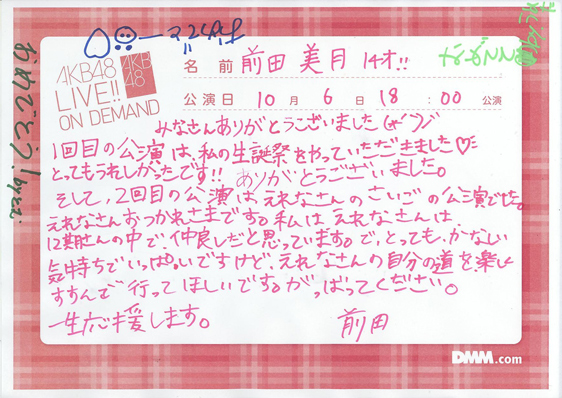 AKB48
LIVE!!
ON DEMAND
AKB
48
名前 前田 美月 14才!!
公演日 10月 6日 18:00 公演
おめでとう! by
みなさんありがとうございました
1回目の公演は、私の生誕祭をやっていただきました♡
とってもうれしかったです!! ありがとうございました。
そして、2回目の公演は、えれなさんのさいごの公演でした。
えれなさんおつかれさまです。私はえれなさんは、
12期さんの中で、仲良しだと思っています。で、とっても、かなしい
気持ちでいっぱいですけど、えれなさんの自分の道を楽しく
すすんで行ってほしいです。がんばってください。
一生応援します。
前田
DMM.com